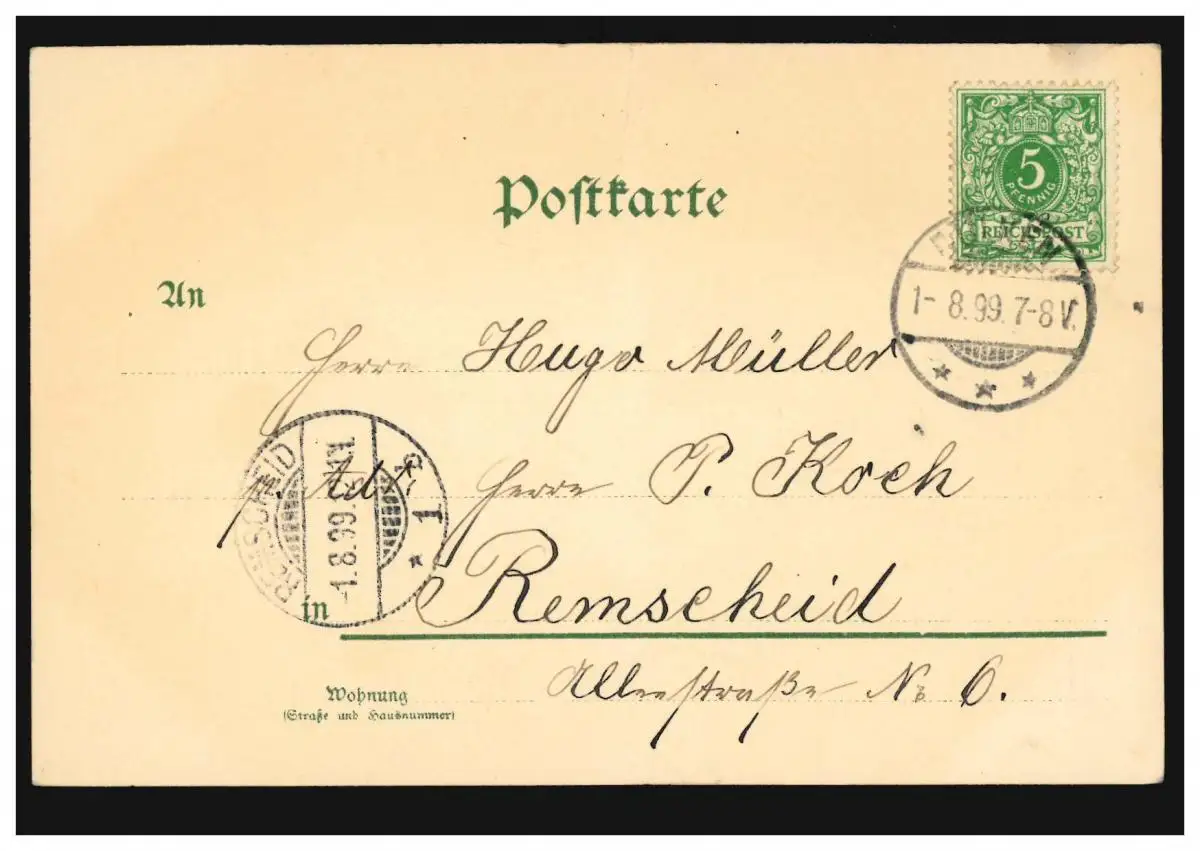 Postkarte
5
PFENNIG
REICHSPOST
1- 8.99. 7-8 V.
An
Herrn Hugo Müller
Adr. Herrn P. Koch
REMSCHEID
1
in Remscheid
N° 6.
Wohnung
(Straße und Hausnummer)